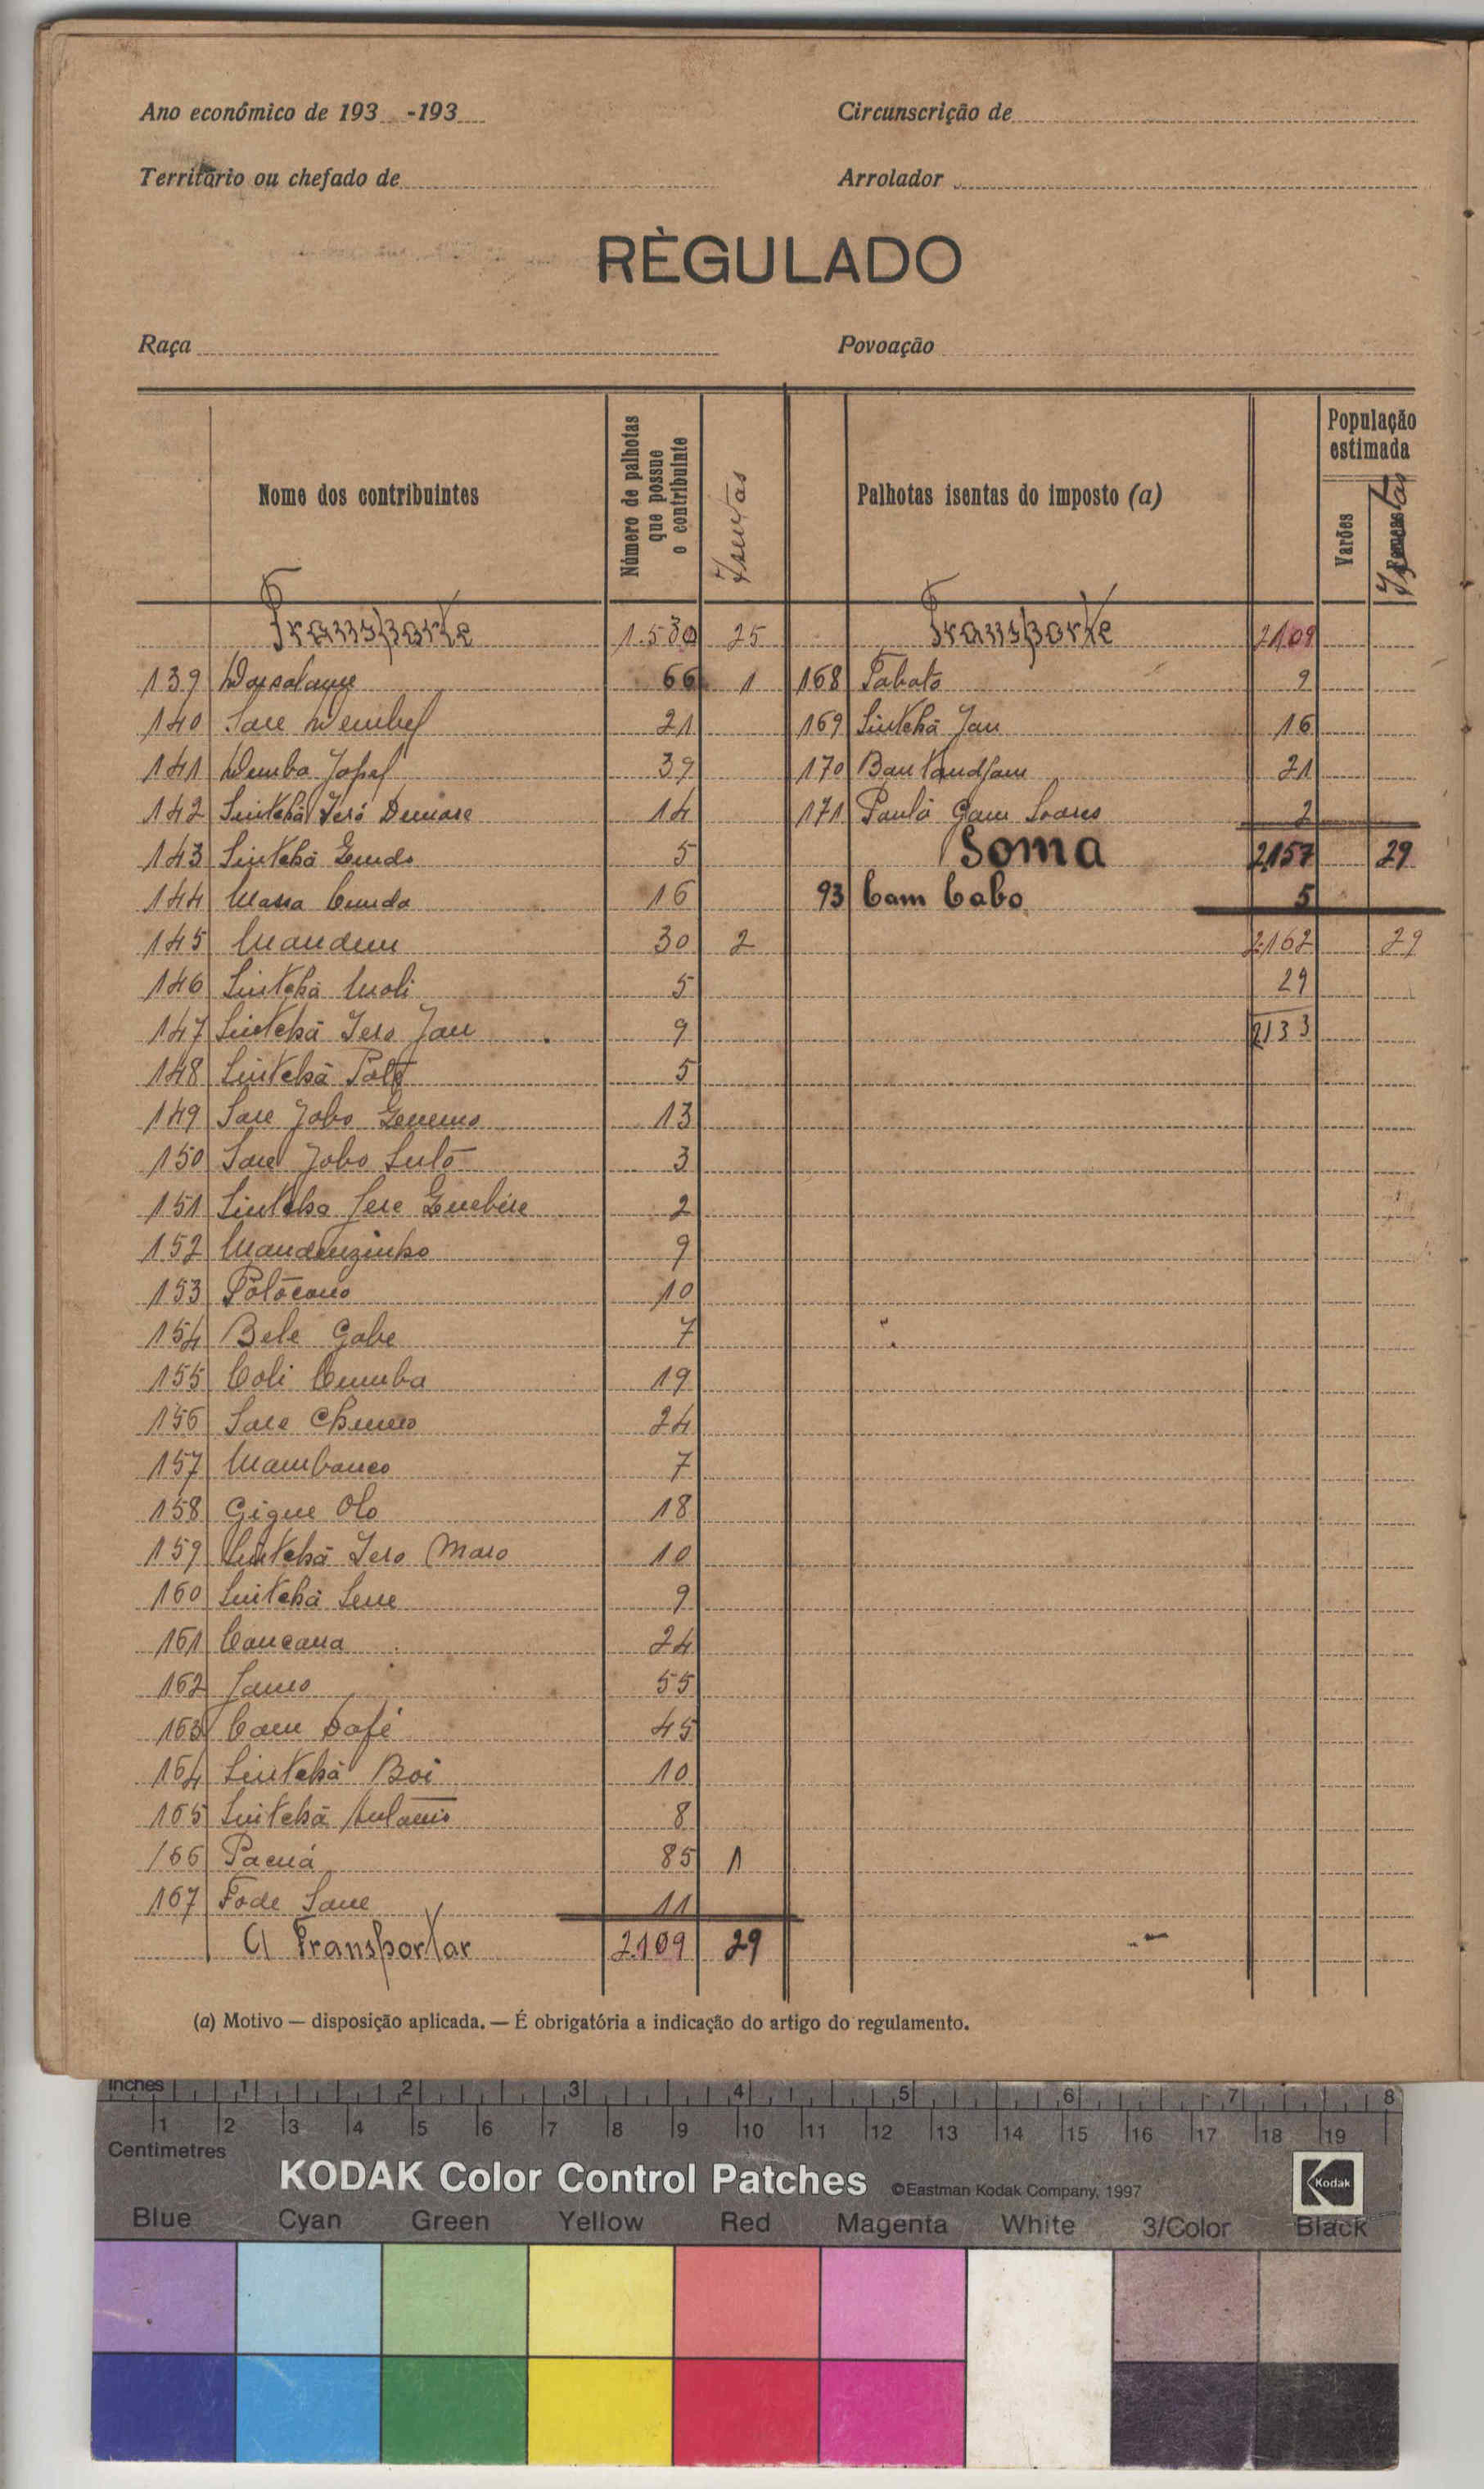 Ano económico de 193 -193
Circunscrição de
Território ou chefado de
Arrolador
RÈGULADO
Raça
Povoação
Nome dos contribuintes
Número de palhotas que possue o contribuinte
Isentas
Palhotas isentas do imposto (a)
População estimada
Varões
Femeas
Isentas
Transporte 1.530 25
139 66 1
140 Sare Dembel 21
141 Demba Jopel 39
142 Sintchã Jeró 14
143 Sintchã 5
144 Massa Cunda 16
145 30 2
146 Sintchã 5
147 Sintchã Iero Jau 9
148 Sintchã 5
149 Sare Jobo 13
150 Sare Jobo 3
151 Sintcha 2
152 Mandenzinho 9
153 10
154 Bele Gabe 7
155 Coli Cumba 19
156 Sare 24
157 Mambonco 7
158 Gigue Olo 18
159 Sintchã Iero Maro 10
160 Sintchã Sene 9
161 24
162 55
163 Cam Dafé 45
164 Sintchã Boi 10
165 Sintchã 8
166 Pacuá 85 1
167 Fode Sane 11
A Transportar 2.109 29
Transporte 2109
168 Tabato 9
169 Sintchã Jau 16
170 21
171 Paulo Gam Soares 2
Soma 2.157 29
93 Cam Cabo 5
2.162 29
29
2133
(a) Motivo — disposição aplicada. — É obrigatória a indicação do artigo do regulamento.
inches 1 2 3 4 5 6 7 8
1 2 3 4 5 6 7 8 9 10 11 12 13 14 15 16 17 18 19
Centimetres
KODAK Color Control Patches ©Eastman Kodak Company, 1997
Kodak
Blue Cyan Green Yellow Red Magenta White 3/Color Black